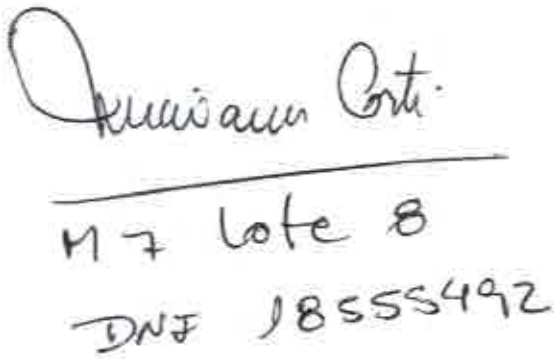 Corti.
M 7 Lote 8
DNI 18555492